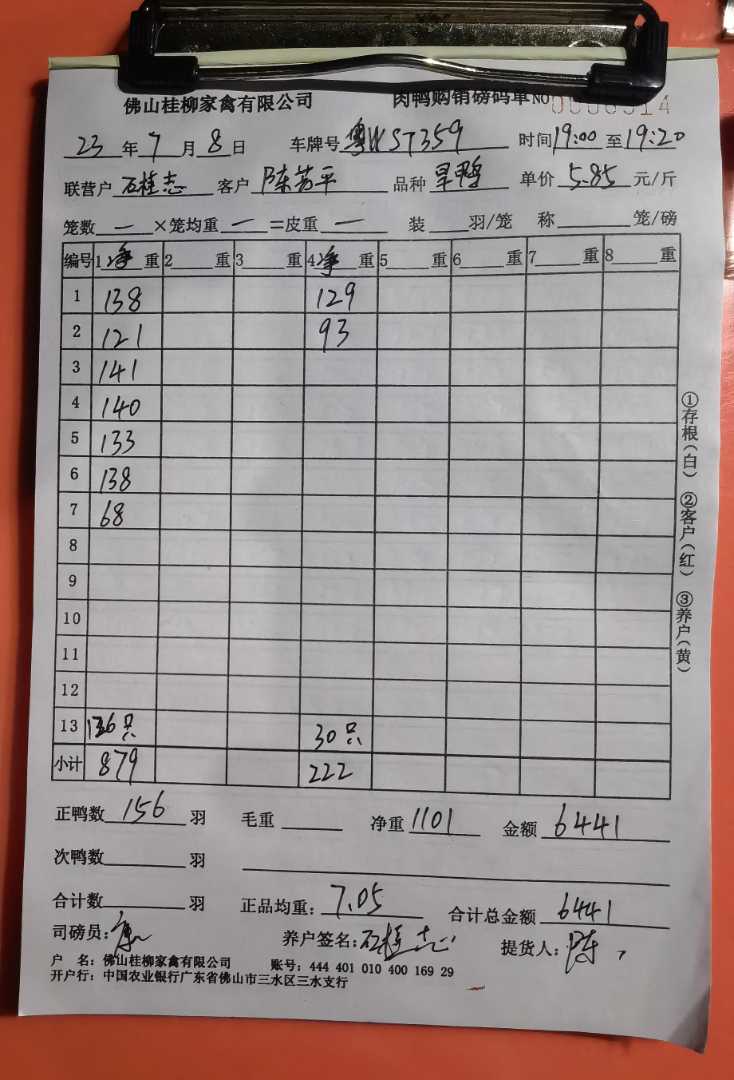 佛山桂柳家禽有限公司 肉鸭购销磅码单 NO
23 年 7 月 8 日 车牌号 粤WST359 时间 19:00 至 19:20
联营户 石桂志 客户 陈芳平 品种 旱鸭 单价 5.85 元/斤
笼数 一 ×笼均重 一 =皮重 一 装 羽/笼 称 笼/磅
编号 1 净 重 2 重 3 重 4 净 重 5 重 6 重 7 重 8 重
1 138 129
2 121 93
3 141
4 140
5 133
6 138
7 68
8
9
10
11
12
13 126只 30只
小计 879 222
正鸭数 156 羽 毛重 净重 1101 金额 6441
次鸭数 羽
合计数 羽 正品均重: 7.05 合计总金额 6441
司磅员: 养户签名: 石桂志 提货人: 陈
户 名: 佛山桂柳家禽有限公司 账号: 444 401 010 400 169 29
开户行: 中国农业银行广东省佛山市三水区三水支行
①存根(白) ②客户(红) ③养户(黄)